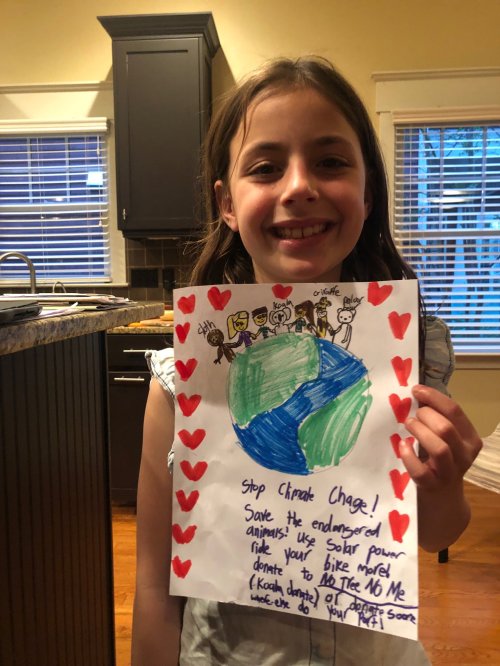 Sloth Koala Giraffe Polar
Stop Climate Chage!
Save the endangered
animals! Use Solar power
ride your bike more!
donate to No Tree No Me
(Koala donate) or donate some
where-else do your Part!